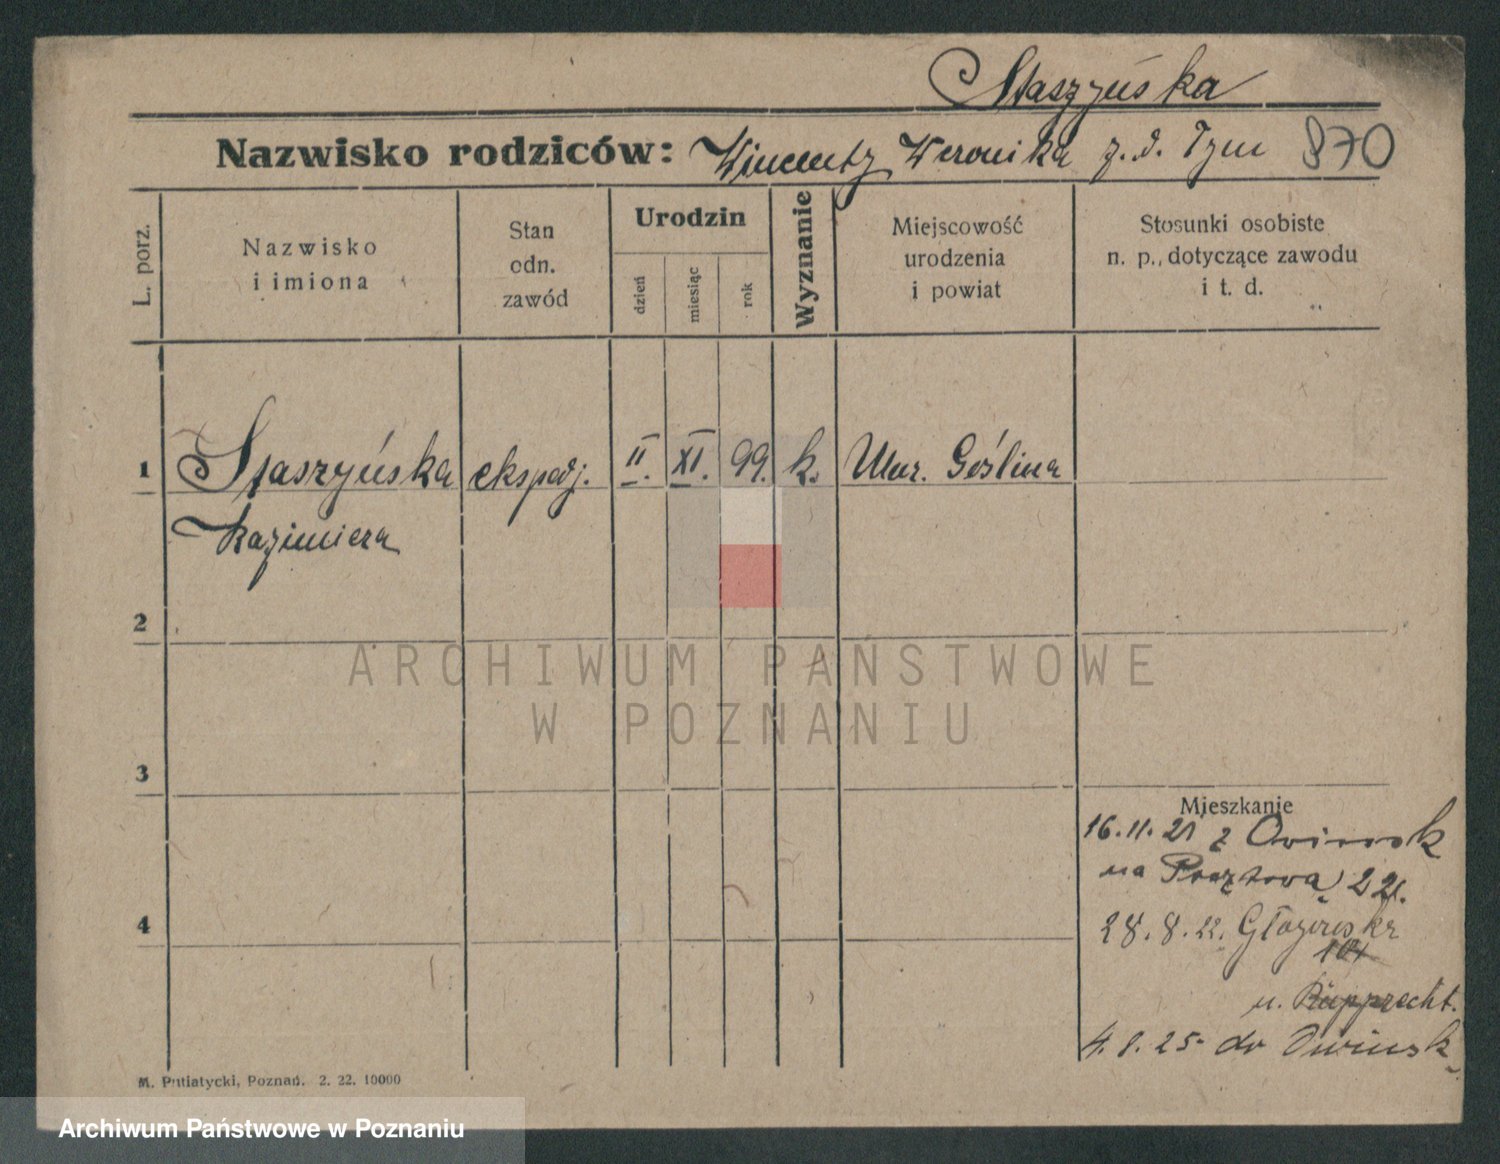 Staszyńska
Nazwisko rodziców: Wincenty Weronika z. d. Tym 870
L. porz.
Nazwisko i imiona
Stan odn. zawód
Urodzin
dzień
miesiąc
rok
Wyznanie
Miejscowość urodzenia i powiat
Stosunki osobiste n. p., dotyczące zawodu i t. d.
1 Staszyńska ekspedj. 11. XI. 99. k. Mur. Goślina
Kazimiera
2
ARCHIWUM PAŃSTWOWE
W POZNANIU
3
Mieszkanie
16.11.21 z Owinsk
na Pocztową 22.
4
28.8.22. Głogowska
101
u. Rupprecht.
4.8.25 do Owinsk
M. Putiatycki, Poznań. 2. 22. 10000
Archiwum Państwowe w Poznaniu